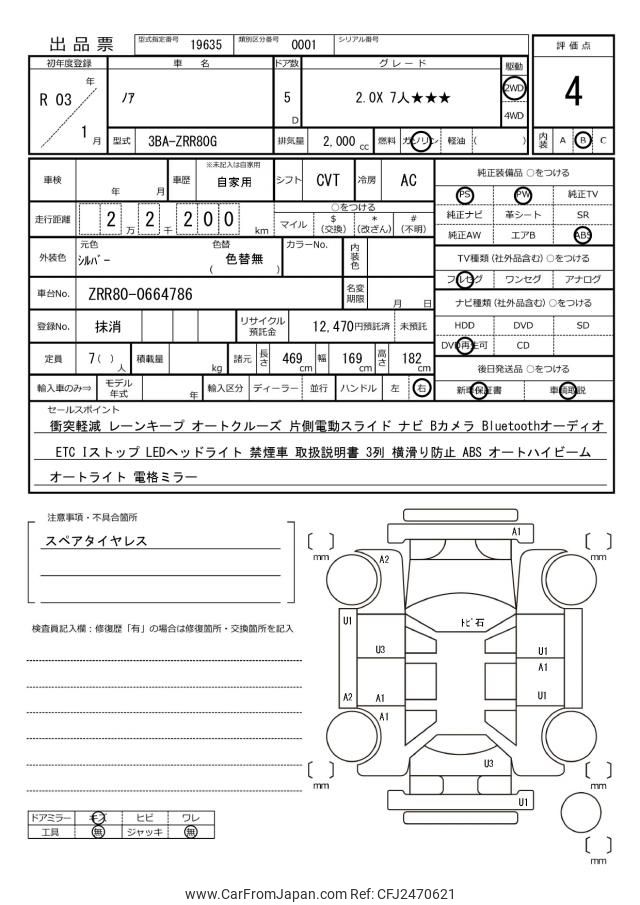 出品票 型式指定番号 19635 類別区分番号 0001 シリアル番号
評価点
初年度登録 車名 ドア数 グレード 駆動
R 03 年 ノア 5 D 2.0X 7人★★★ 2WD 4
4WD
1 月 型式 3BA-ZRR80G 排気量 2,000 cc 燃料 ガソリン 軽油 ( ) 内装 A B C
車検 年 月 車歴 ※未記入は自家用 自家用 シフト CVT 冷房 AC
純正装備品 ○をつける
PS PW 純正TV
純正ナビ 革シート SR
純正AW エアB ABS
走行距離 2 万 2 千 2 0 0 km
○をつける
マイル $ (交換) * (改ざん) # (不明)
外装色 元色 シルバー 色替 ( 色替無 ) カラーNo. 内装色
TV種類 (社外品含む) ○をつける
フルセグ ワンセグ アナログ
車台No. ZRR80-0664786 名変期限 月 日
ナビ種類 (社外品含む) ○をつける
登録No. 抹消 リサイクル預託金 12,470円預託済 未預託
HDD DVD SD
DVD再生可 CD
定員 7 ( ) 人 積載量 kg 諸元 長さ 469 cm 幅 169 cm 高さ 182 cm
後日発送品 ○をつける
輸入車のみ⇒ モデル年式 年 輸入区分 ディーラー 並行 ハンドル 左 右
新車保証書 車輌取説
セールスポイント
衝突軽減 レーンキープ オートクルーズ 片側電動スライド ナビ Bカメラ Bluetoothオーディオ
ETC Iストップ LEDヘッドライト 禁煙車 取扱説明書 3列 横滑り防止 ABS オートハイビーム
オートライト 電格ミラー
注意事項・不具合箇所
スペアタイヤレス
検査員記入欄：修復歴「有」の場合は修復箇所・交換箇所を記入
A1
[ ] mm [ ] mm
A2
トビ石
U1
U3 U1
A1
A2 A1 U1
A1
U3
[ ] mm [ ] mm
U1
[ ] mm
ドアミラー キズ ヒビ ワレ
工具 無 ジャッキ 無
www.CarFromJapan.com Ref: CFJ2470621